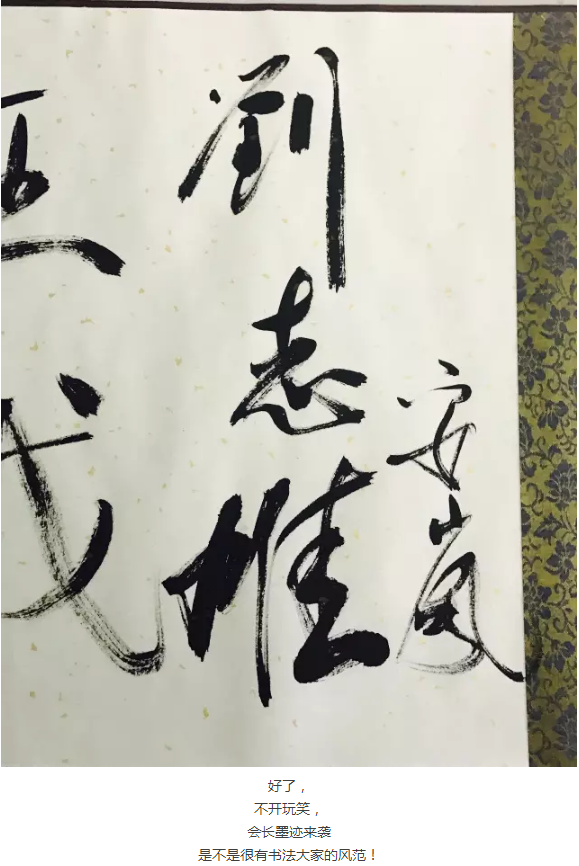 安
劉志惟
好了，
不开玩笑，
会长墨迹来袭
是不是很有书法大家的风范！